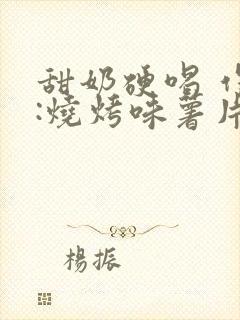 甜奶硬唱
:燒烤味薯片
楊振